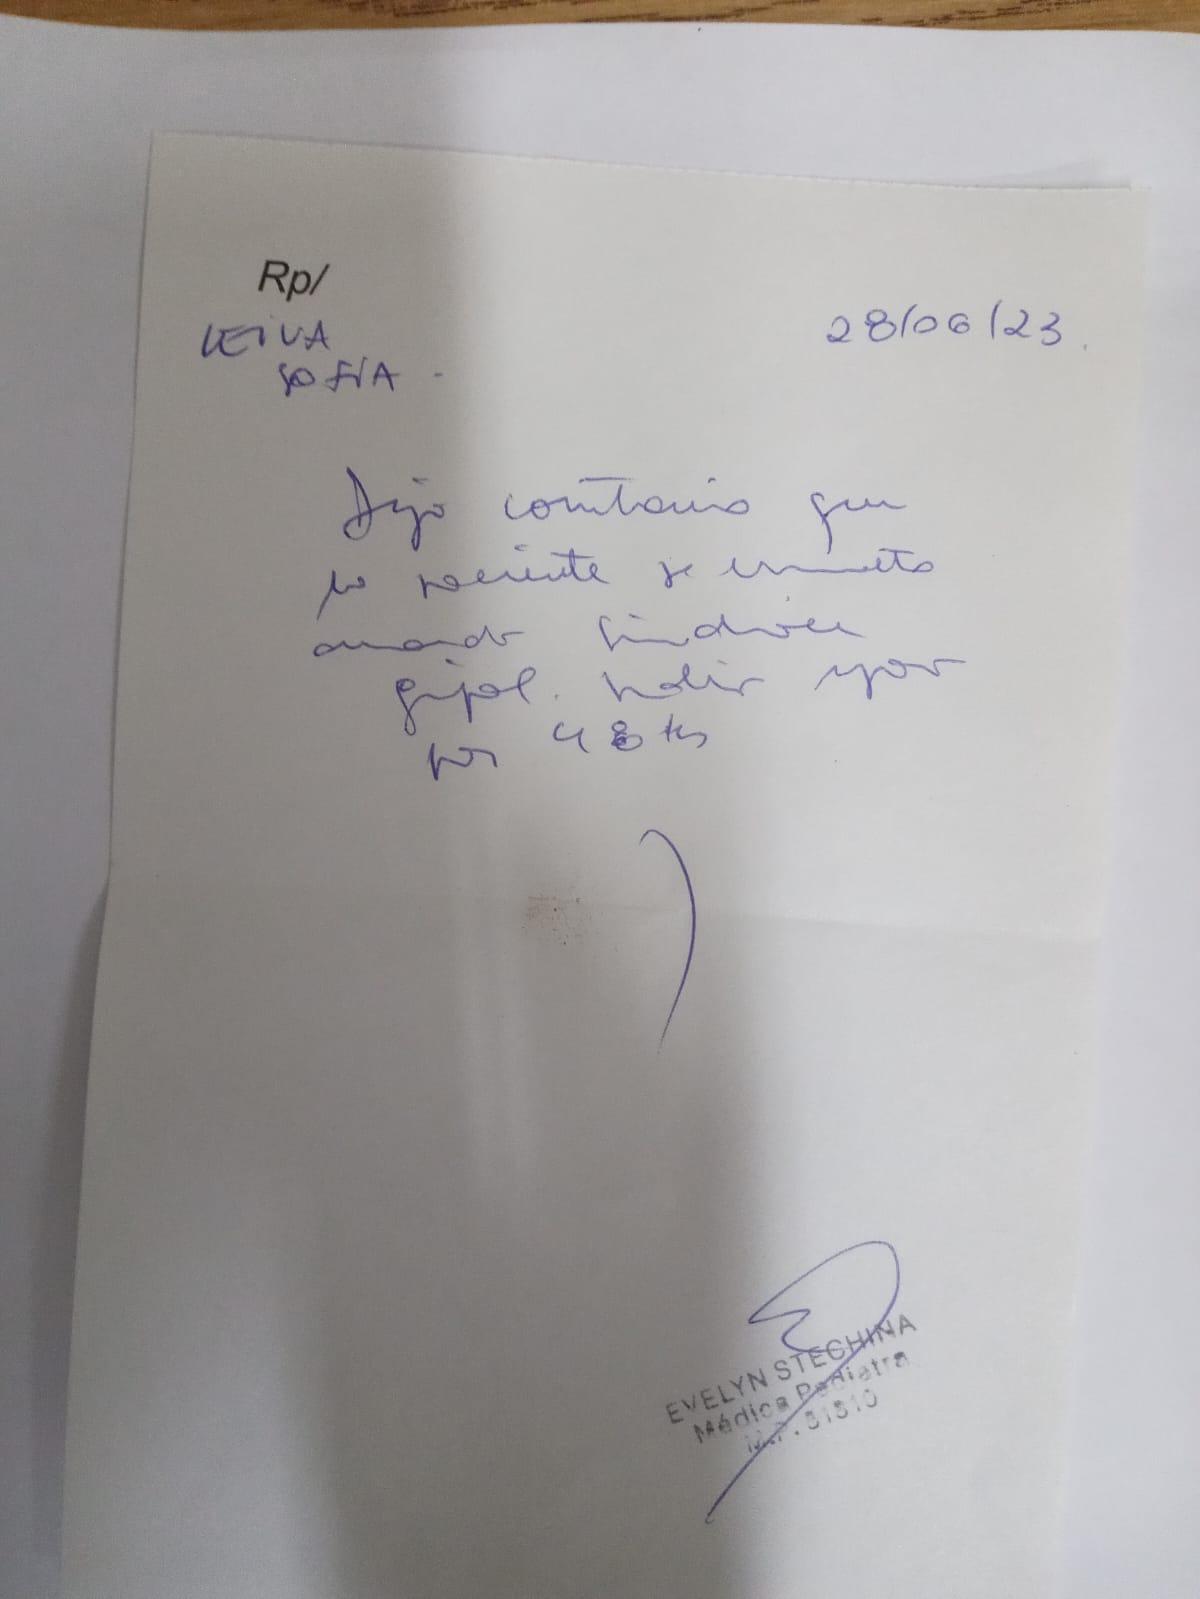 Rp/
LEIVA
SOFIA.
28/06/23.
Dejo constancia que
la paciente se encuentra
cursando síndrome
gripal. Indico reposo
por 48 hs
EVELYN STECHINA
Médica Pediatra
M.P.